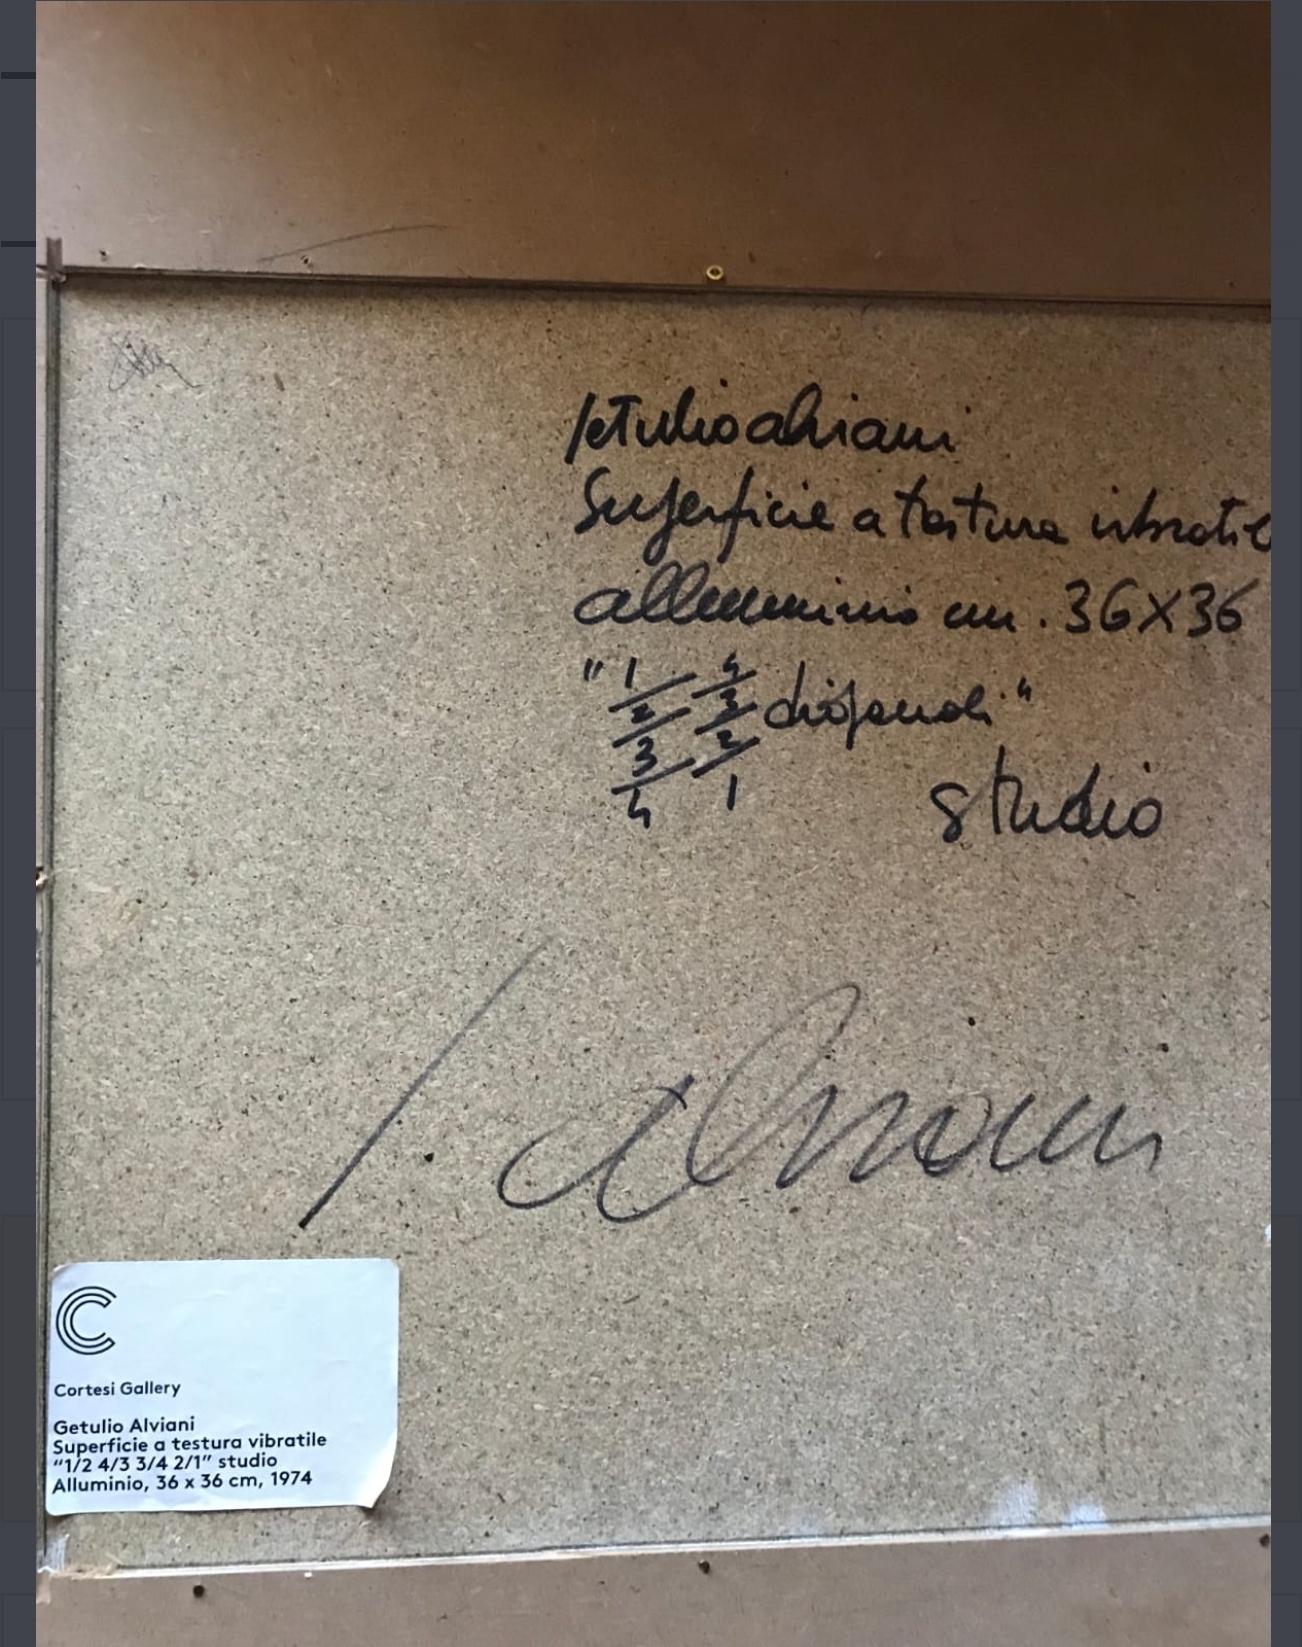 getulio alviani
Superficie a testura vibratile
alluminio cm. 36X36
"1/2/3/4 4/3/2/1
studio
alviani
C
Cortesi Gallery
Getulio Alviani
Superficie a testura vibratile
“1/2 4/3 3/4 2/1” studio
Alluminio, 36 x 36 cm, 1974